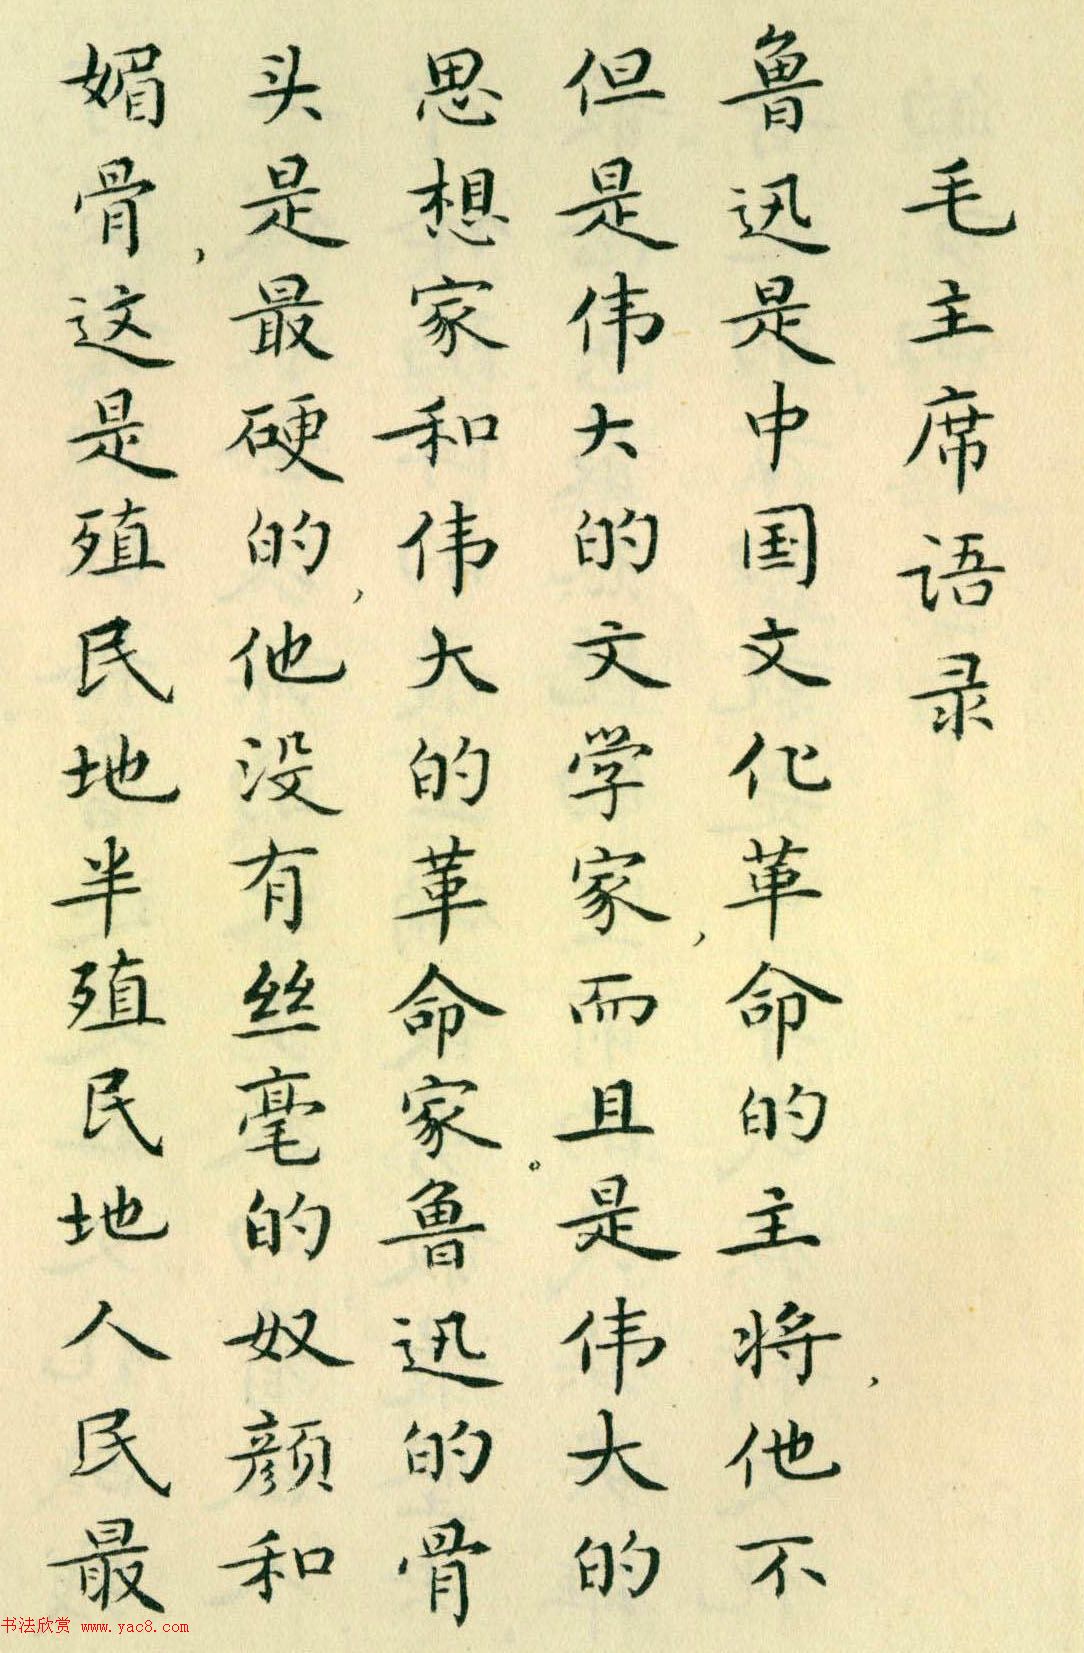 毛主席语录
鲁迅是中国文化革命的主将，他不
但是伟大的文学家，而且是伟大的
思想家和伟大的革命家。鲁迅的骨
头是最硬的，他没有丝毫的奴颜和
媚骨，这是殖民地半殖民地人民最
书法欣赏 www.yac8.com